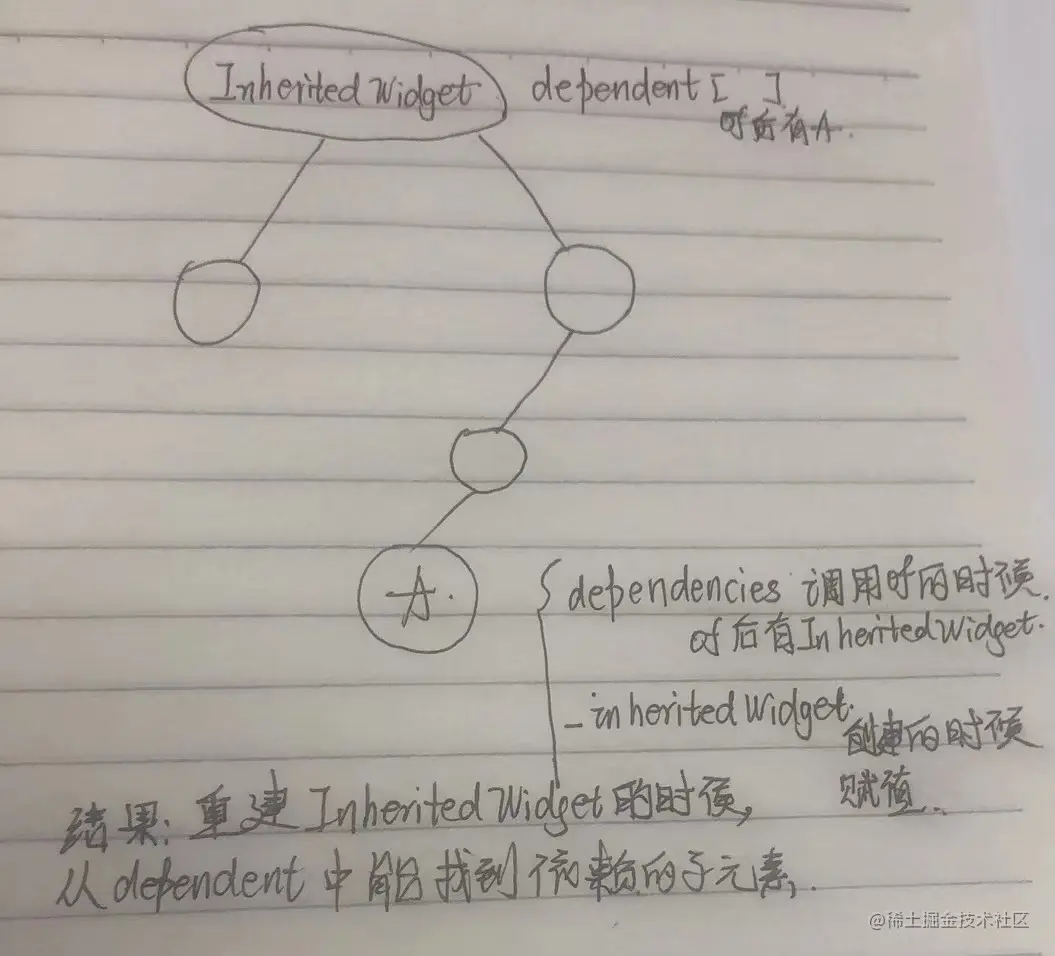 Inherited Widget dependent [ ]
of后有A.
A.
dependencies 调用of的时候.
of后有InheritedWidget.
_inheritedWidget.
创建的时候
赋值.
结果: 重建InheritedWidget的时候,
从dependent中能找到依赖的子元素.
@稀土掘金技术社区